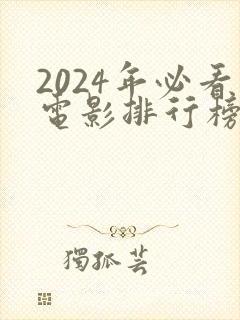 2024年必看
电影排行榜
獨孤芸